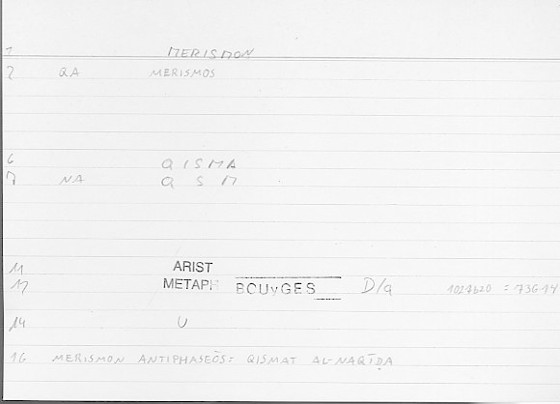 1 MERISMON
2 QA MERISMOS
6 QISMA
7 NA Q S M
11 ARIST
12 METAPH BOUyGES D/a 1027b20 = 736.14
14 U
16 MERISMON ANTIPHASEŌS: QISMAT AL-NAQĪḌA